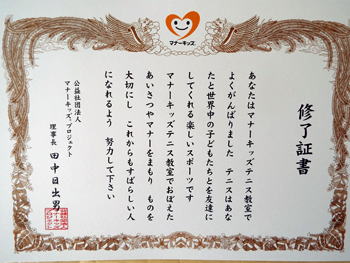 マナーキッズ
修了証書
あなたはマナーキッズテニス教室で
よくがんばりました テニスはあな
たと世界中の子どもたちとを友達に
してくれる楽しいスポーツです
マナーキッズテニス教室でおぼえた
あいさつやマナーをまもり ものを
大切にし これからもすばらしい人
になれるよう 努力して下さい
公益社団法人
マナーキッズプロジェクト
理事長 田中日出男